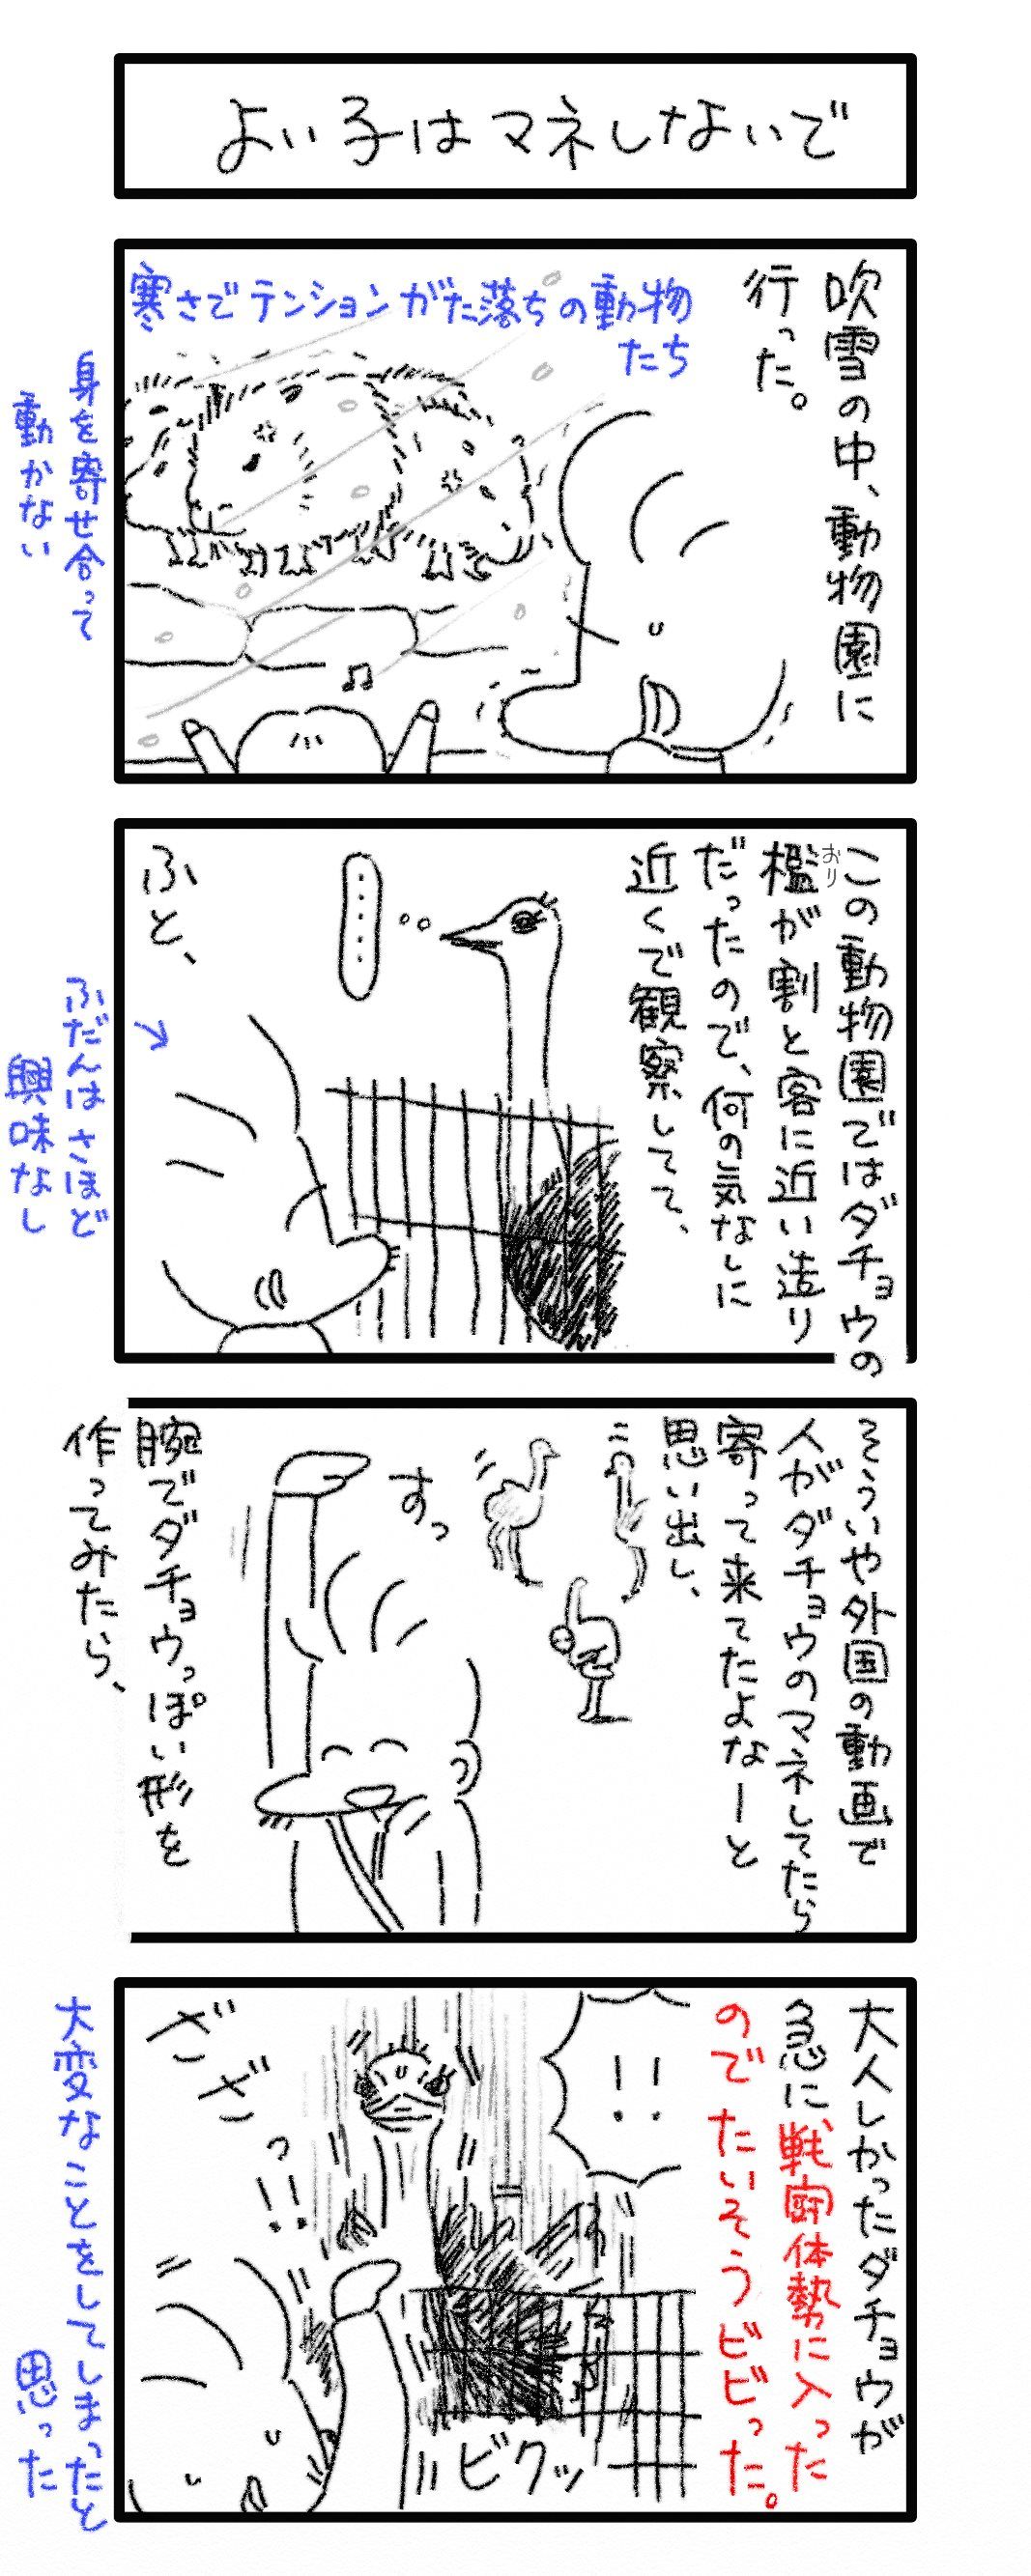 よい子はマネしないで
吹雪の中、動物園に
行った。
寒さでテンションがた落ちの動物
たち
身を寄せ合って
動かない
この動物園ではダチョウの
檻が割と客に近い造り
おり
だったので、何の気なしに
近くで観察してて、
ふと、
ふだんはさほど
興味なし
そういや外国の動画で
人がダチョウのマネしてたら
寄って来てたよなーと
思い出し、
すっ
腕でダチョウっぽい形を
作ってみたら、
大人しかったダチョウが
急に戦闘体勢に入った
のでたいそうビビった。
!!
ざざっ!!
ビクッ
大変なことをしてしまったと
思った